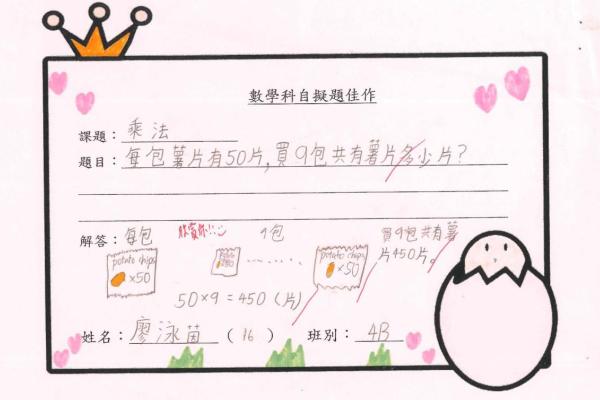 數學科自擬題佳作
課題：乘法
題目：每包薯片有50片，買9包共有薯片多少片？
解答：每包 欣賞你!! 9包 買9包共有薯
片450片。
potato chips potato chips
×50 ........ ×50
50×9=450（片）
姓名：廖泳茵（16） 班別：4B